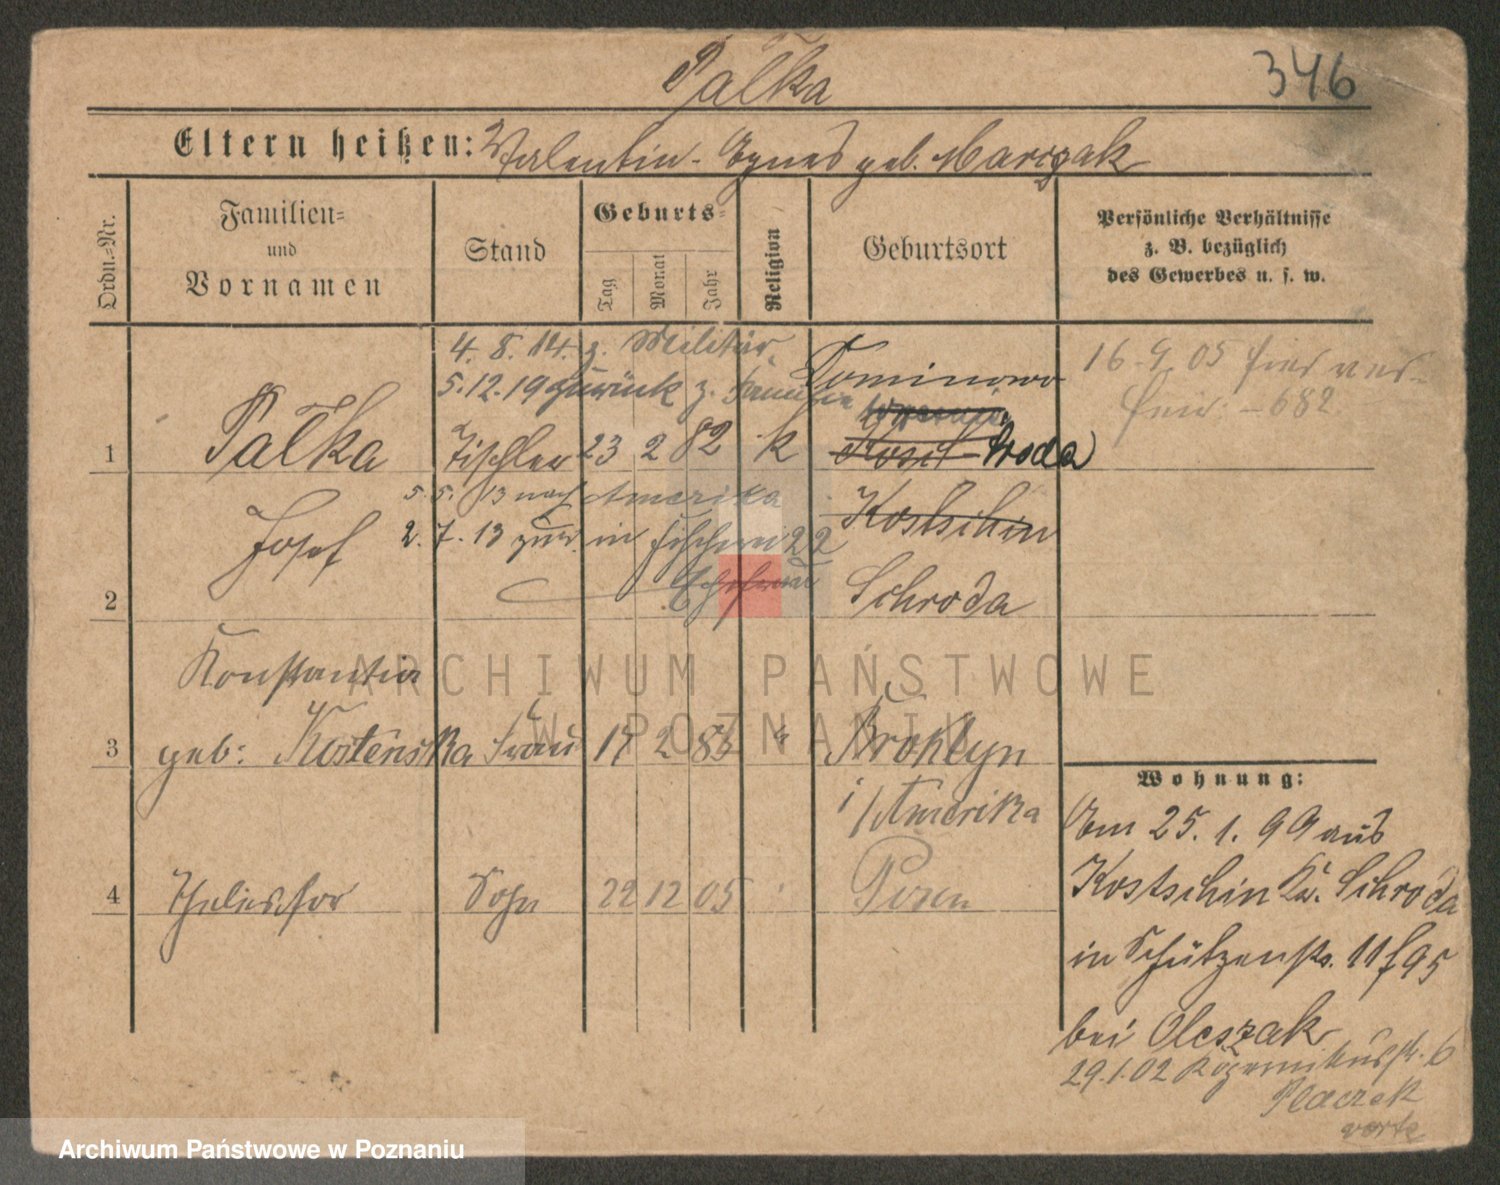 Pałka
346
Eltern heißen: Valentin - Agnes geb. Marczak
Ordn.-Nr.
Familien-
und
Vornamen
Stand
Geburts-
Tag
Monat
Jahr
Religion
Geburtsort
Persönliche Verhältnisse
z. B. bezüglich
des Gewerbes u. s. w.
4. 8. 14. z. Militär
5. 12. 19 zurück z. Familie
Dominowo
16. 9. 05
682
1
Pałka
Tischler
23 2 82 k
Kosch
Sroda
5. 5. 13 nach Amerika
Josef
2. 7. 13 zur. in
Kostschin
2
Ehefrau
Schroda
Konstantia
3
geb: Kosteńska Frau
17 2 83
Broklyn
i/Amerika
4
Sohn
22 12 05
Posen
Wohnung:
Am 25. 1. 99 aus
Kostschin Kr. Schroda
in Schützenstr. 11 f 95
bei Oleszak
29. 1. 02
6
Placzek
ARCHIWUM PAŃSTWOWE
W POZNANIU
Archiwum Państwowe w Poznaniu